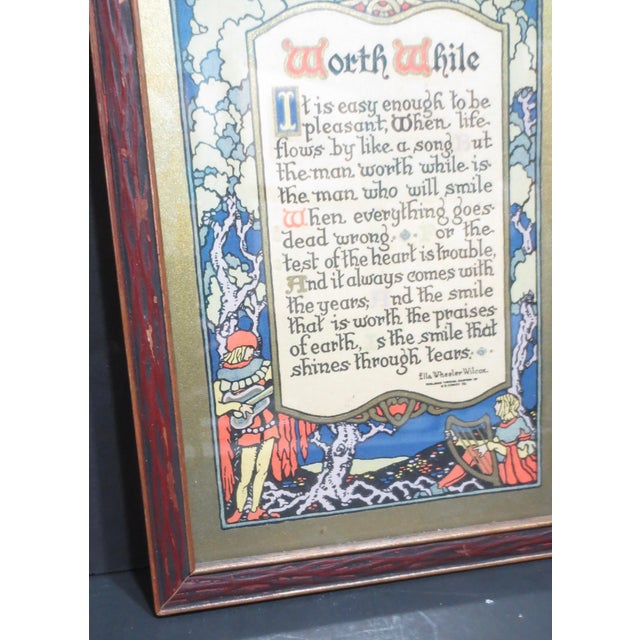 Worth While
It is easy enough to be
pleasant, When life
flows by like a song, But
the man worth while is
the man who will smile
When everything goes
dead wrong. For the
test of the heart is trouble,
And it always comes with
the years, And the smile
that is worth the praises
of earth, s the smile that
shines through tears.
Ella Wheeler Wilcox.